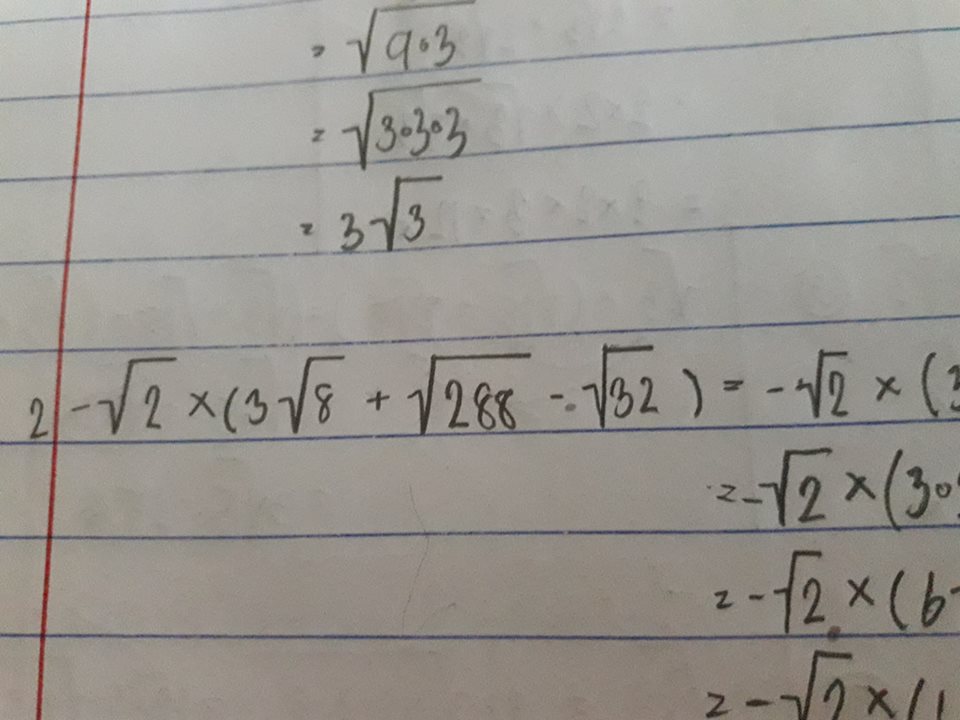 = √9·3
= √3·3·3
= 3√3
2 -√2 × (3√8 + √288 - √32) = -√2 × (3
= -√2 × (3·
= -√2 × (6
= -√2 × (1